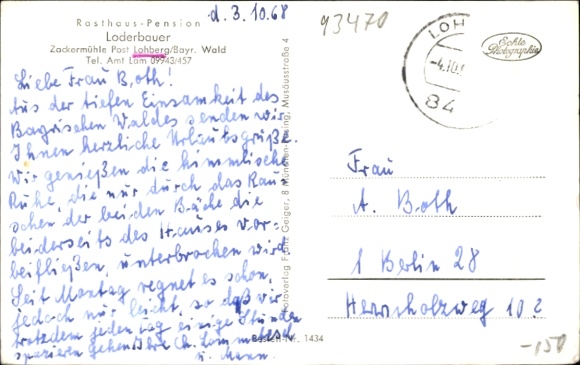 Rasthaus-Pension
Loderbauer
Zackermühle Post Lohberg/Bayr. Wald
Tel. Amt Lam 09943/457
d. 3.10.68
93470
LOH
-4.10.
84
Echte
Photographie
Liebe Frau Both!
Aus der tiefen Einsamkeit des
Bayrischen Waldes senden wir
Ihnen herzliche Urlaubsgrüße.
Wir genießen die himmlische
Ruhe, die nur durch das Rau-
schen der beiden Bäche die
beiderseits des Hauses vor-
beifließen, unterbrochen wird.
Seit Montag regnet es schon,
jedoch nur leicht, so daß wir
trotzdem jeden Tag einige Stunden
spazieren gehen. Ihre Ch.
u. Mann.
Fotoverlag Franz Geiger, 8 München-Pasing, Musäusstraße 4
Bestell-Nr. 1434
Frau
A. Both
1 Berlin 28
Herrscholzweg 10
-150